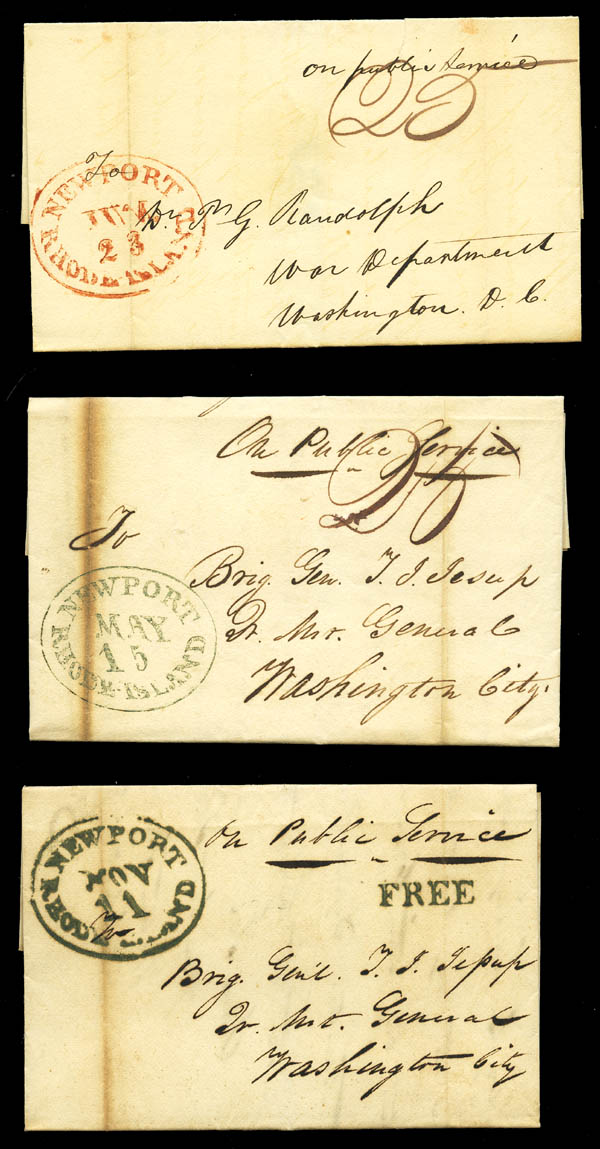 on public Service
25
To
NEWPORT
JUL
23
RHODE-ISLAND
Dr. P. G. Randolph
War Department
Washington. D. C.
On Public Service
25
To
NEWPORT
MAY
15
RHODE-ISLAND
Brig. Gen. T. J. Jesup
Qr. Mr. General
Washington City.
NEWPORT
NOV
11
RHODE-ISLAND
On Public Service
FREE
To
Brig. Genl. T. J. Jesup
Qr. Mr. General
Washington City